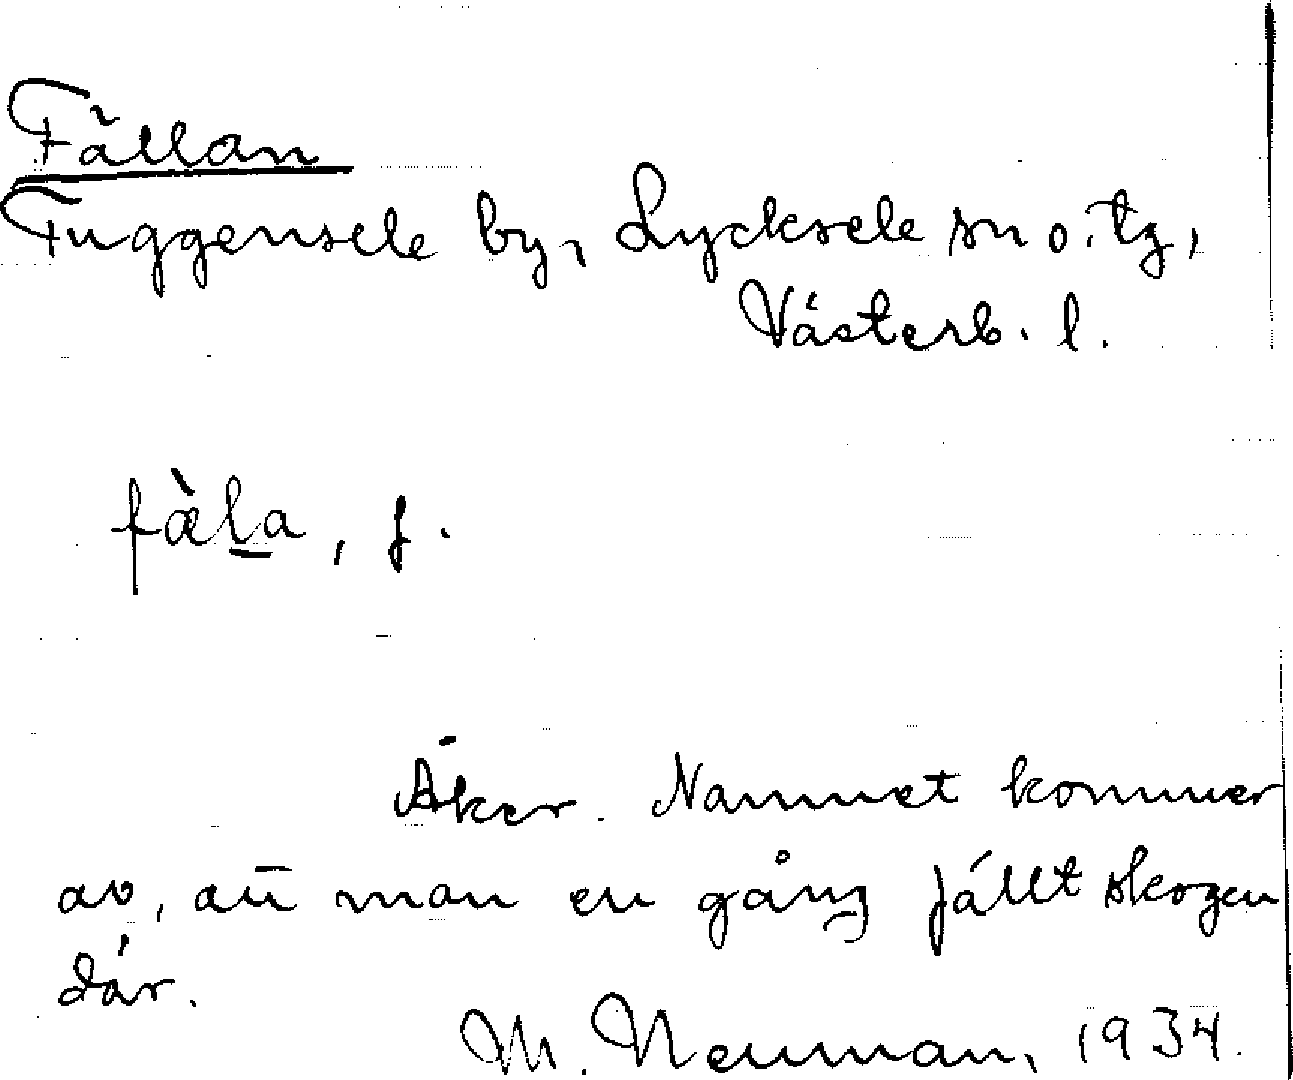 Fällan
Tuggensele by, Lycksele sn o. tg,
Västerb. l.
fæ̀l̲a, f.
Åker. Namnet kommer
av, att man en gång fällt skogen
där.
M. Neuman, 1934.